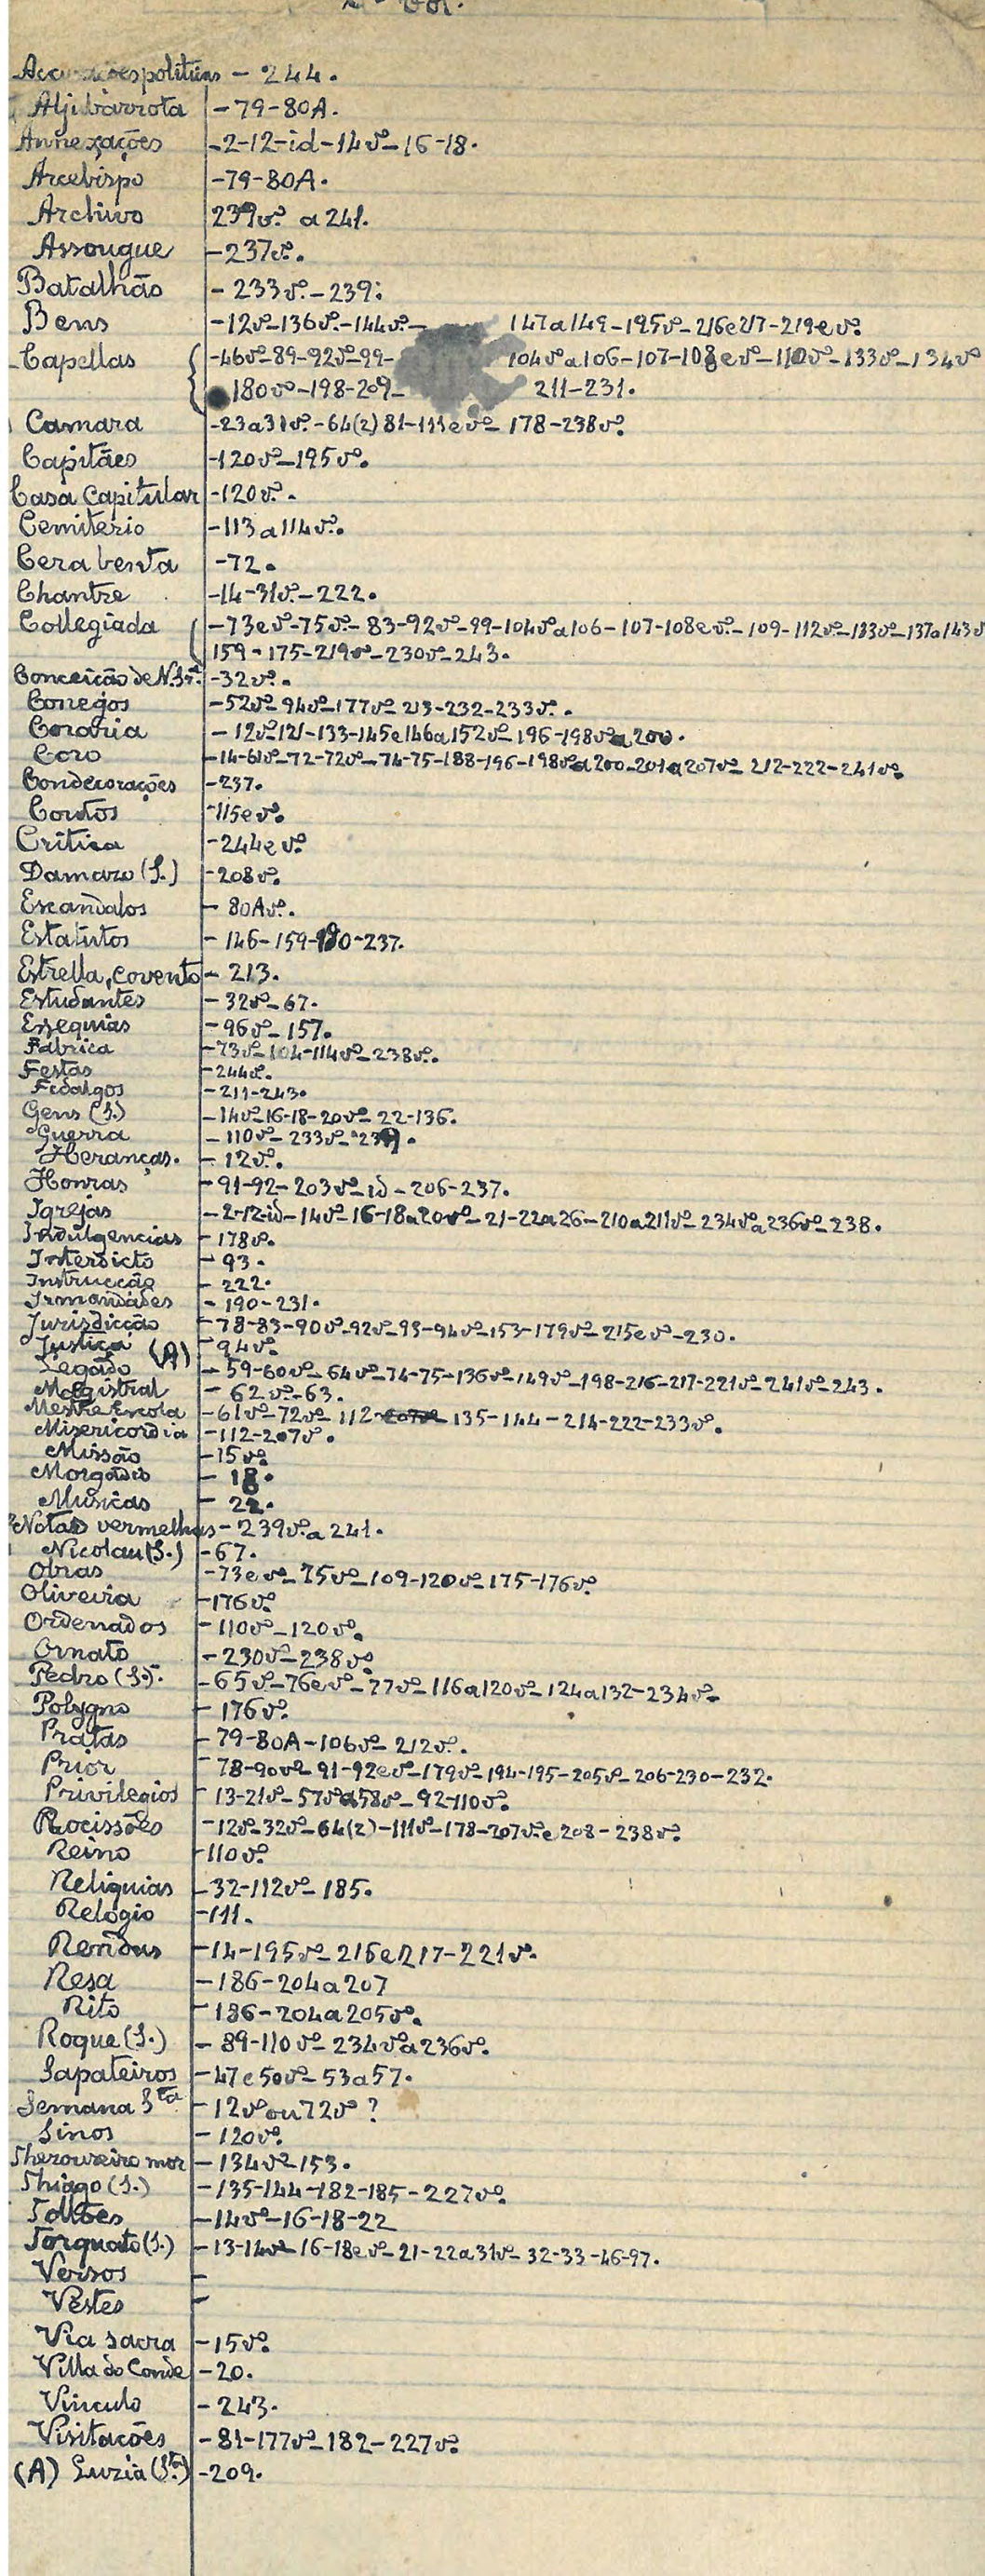 2º Vol.
Accusações politicas - 244.
Aljubarrota - 79-80A.
Annexações - 2-12-id-14vº-16-18.
Arcebispo - 79-80A.
Archivo 239vº a 241.
Assougue - 237vº.
Batalhão - 233vº-239:
Bens - 12vº-136vº-144vº- 147a149-195vº-216e217-219evº
Capellas - 46vº-89-92vº-99- 104vºa106-107-108evº-110vº-133vº-134vº
180vº-198-209- 211-231.
Camara - 23a31vº-64(2)81-111evº- 178-238vº
Capitães - 120vº-195vº.
Casa Capitular - 120vº.
Cemiterio - 113a114vº.
Cera benta - 72.
Chantre - 14-31vº-222.
Collegiada - 73evº-75vº-83-92vº-99-104vºa106-107-108evº-109-112vº-133vº-137a143vº
159-175-219vº-230vº-243.
Conceição de N. Srª. - 32vº.
Conegos - 52vº-94vº-177vº-213-232-233vº.
Coraria - 12vº121-133-145e146a152vº-196-198vºa200.
Coro - 14-61vº-72-72vº-74-75-188-196-198vºa200-201a207vº-212-222-241vº
Condecorações - 237.
Coutos - 115evº
Critica - 244evº
Damazo (S.) - 208vº.
Escandalos - 80Avº.
Estatutos - 146-159-190-237.
Estrella, covento - 213.
Estudantes - 32vº-67.
Exequias - 96vº-157.
Fábrica - 73vº-104-114vº-238vº.
Festas - 244vº.
Fidalgos - 211-243.
Gens (S.) - 14vº-16-18-20vº-22-136.
Guerra - 110vº-233vº-239.
Heranças. - 12vº.
Honras - 91-92-203vº-id-206-237.
Igrejas - 2-12-id-14vº-16-18a20vº-21-22a26-210a211vº-234vºa236vº-238.
Indulgencias - 178vº.
Interdicto - 93.
Instrucção - 222.
Irmandades - 190-231.
Jurisdicção - 78-83-90vº-92vº-93-94vº-153-179vº-215evº-230.
Justiça - 94vº.
Legado (A) - 59-60vº-64vº-74-75-136vº-149vº-198-216-217-221vº-241vº-243.
Magistral - 62vº-63.
Mestre Escola - 61vº-72vº-112-207vº 135-144-214-222-233vº.
Misericordia - 112-207vº.
Missão - 15vº
Morgado - 18.
Musicas - 22.
Notas vermelhas - 239vºa 241.
Nicolau (S.) - 67.
Obras - 73evº-75vº-109-120vº-175-176vº
Oliveira - 176vº
Ordenados - 110vº-120vº.
Ornato - 230vº-238vº
Pedro (S.) - 65vº-76evº-77vº-116a120vº-124a132-234vº-
Polygno - 176vº.
Pratas - 79-80A-106vº-212vº.
Prior - 78-90vº-91-92evº-179vº-194-195-205vº-206-230-232.
Privilegios - 13-21vº-57vºa58vº-92-110vº
Procissões - 12vº-32vº-64(2)-111vº-178-207vºe208-238vº
Reino - 110vº
Reliquias - 32-112vº-185.
Relogio - 111.
Rendas - 14-195vº-216e217-221vº.
Resa - 186-204a207
Rito - 186-204a205vº.
Roque (S.) - 89-110vº-234vºa236vº.
Sapateiros - 47e50vº-53a57.
Semana Sta - 12vº ou 72vº ?
Sinos - 120vº.
Thezoureiro mor - 134vº-153.
Thiago (S.) - 135-144-182-185-227vº.
Tolões - 14vº-16-18-22
Torquato (S.) - 13-14vº-16-18evº-21-22a31vº-32-33-46-97.
Versos -
Vestes -
Via Sacra - 15vº
Villa do Conde - 20.
Vinculo - 243.
Visitações - 81-177vº-182-227vº
(A) Luzia (Stª.) - 209.